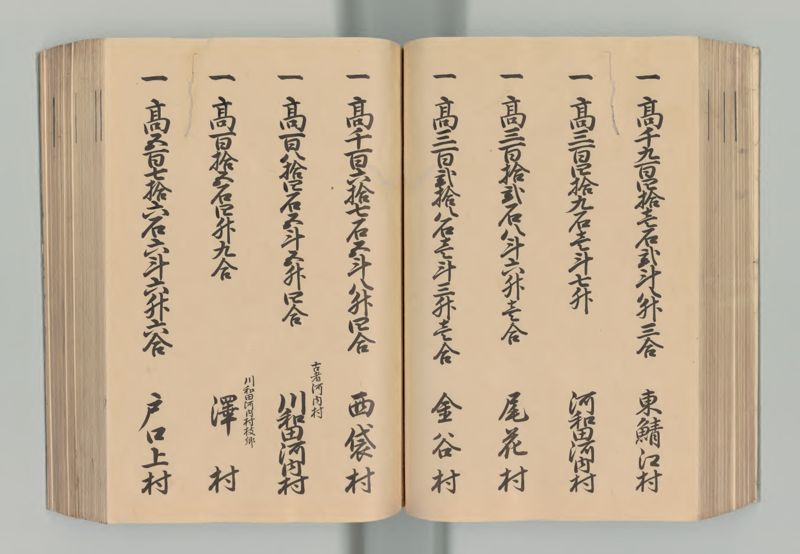 一 高千九百四拾壱石弐斗八升三合 東鯖江村
一 高三百四拾九石壱斗七升 河和田河内村
一 高三百拾弐石八斗六升壱合 尾花村
一 高三百弐拾八石壱斗三升壱合 金谷村
一 高千百六拾七石五斗八升四合 西袋村
古者河内村
一 高百八拾四石五斗五升四合 川和田河内村
川和田河内村枝郷
一 高百拾五石四升九合 澤村
一 高五百七拾六石六斗六升六合 戸口上村